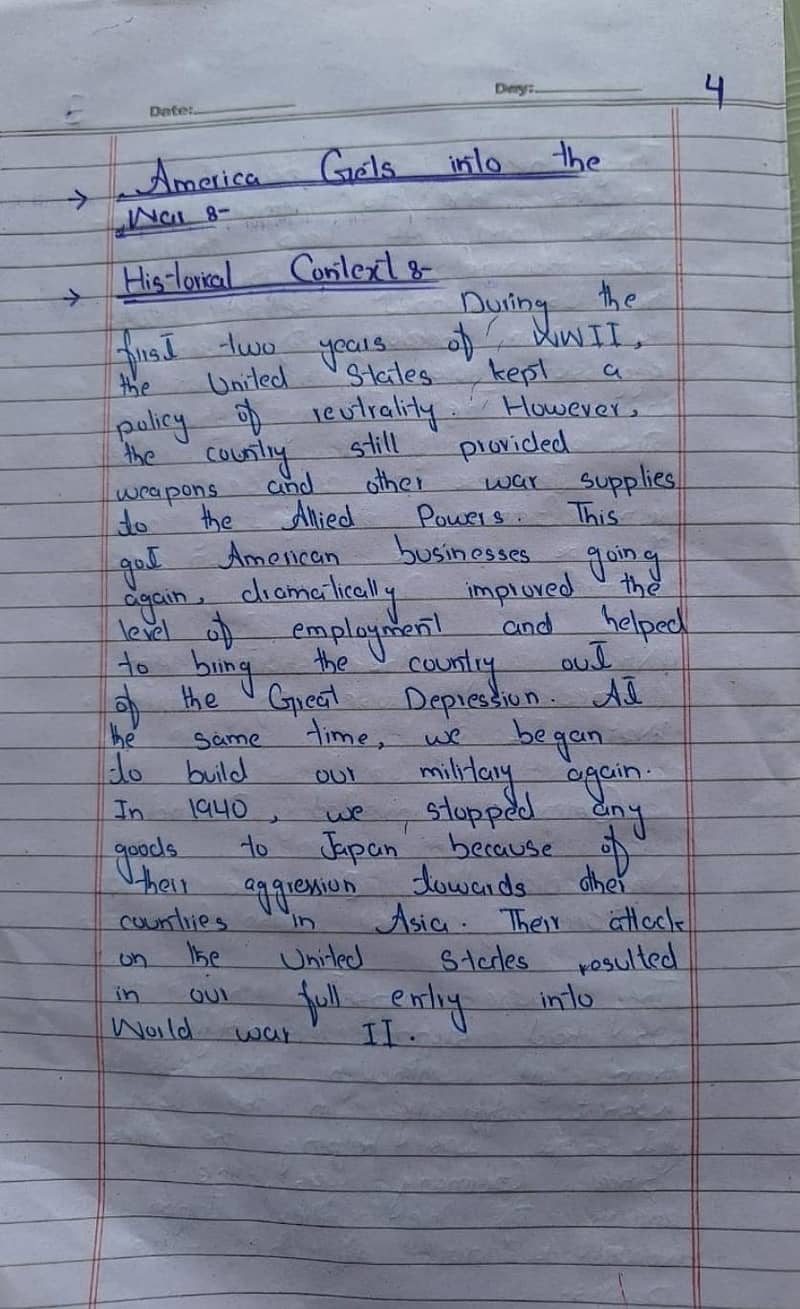 Day:
4
Date:
→ America Gets into the
War :-
→ Historical Context :-
During the
first two years of WWII,
the United States kept a
policy of neutrality. However,
the country still provided
weapons and other war supplies
to the Allied Powers. This
got American businesses going
again, dramatically improved the
level of employment and helped
to bring the country out
of the Great Depression. At
the same time, we began
to build our military again.
In 1940, we stopped any
goods to Japan because of
their aggression towards other
countries in Asia. Their attack
on the United States resulted
in our full entry into
World war II.